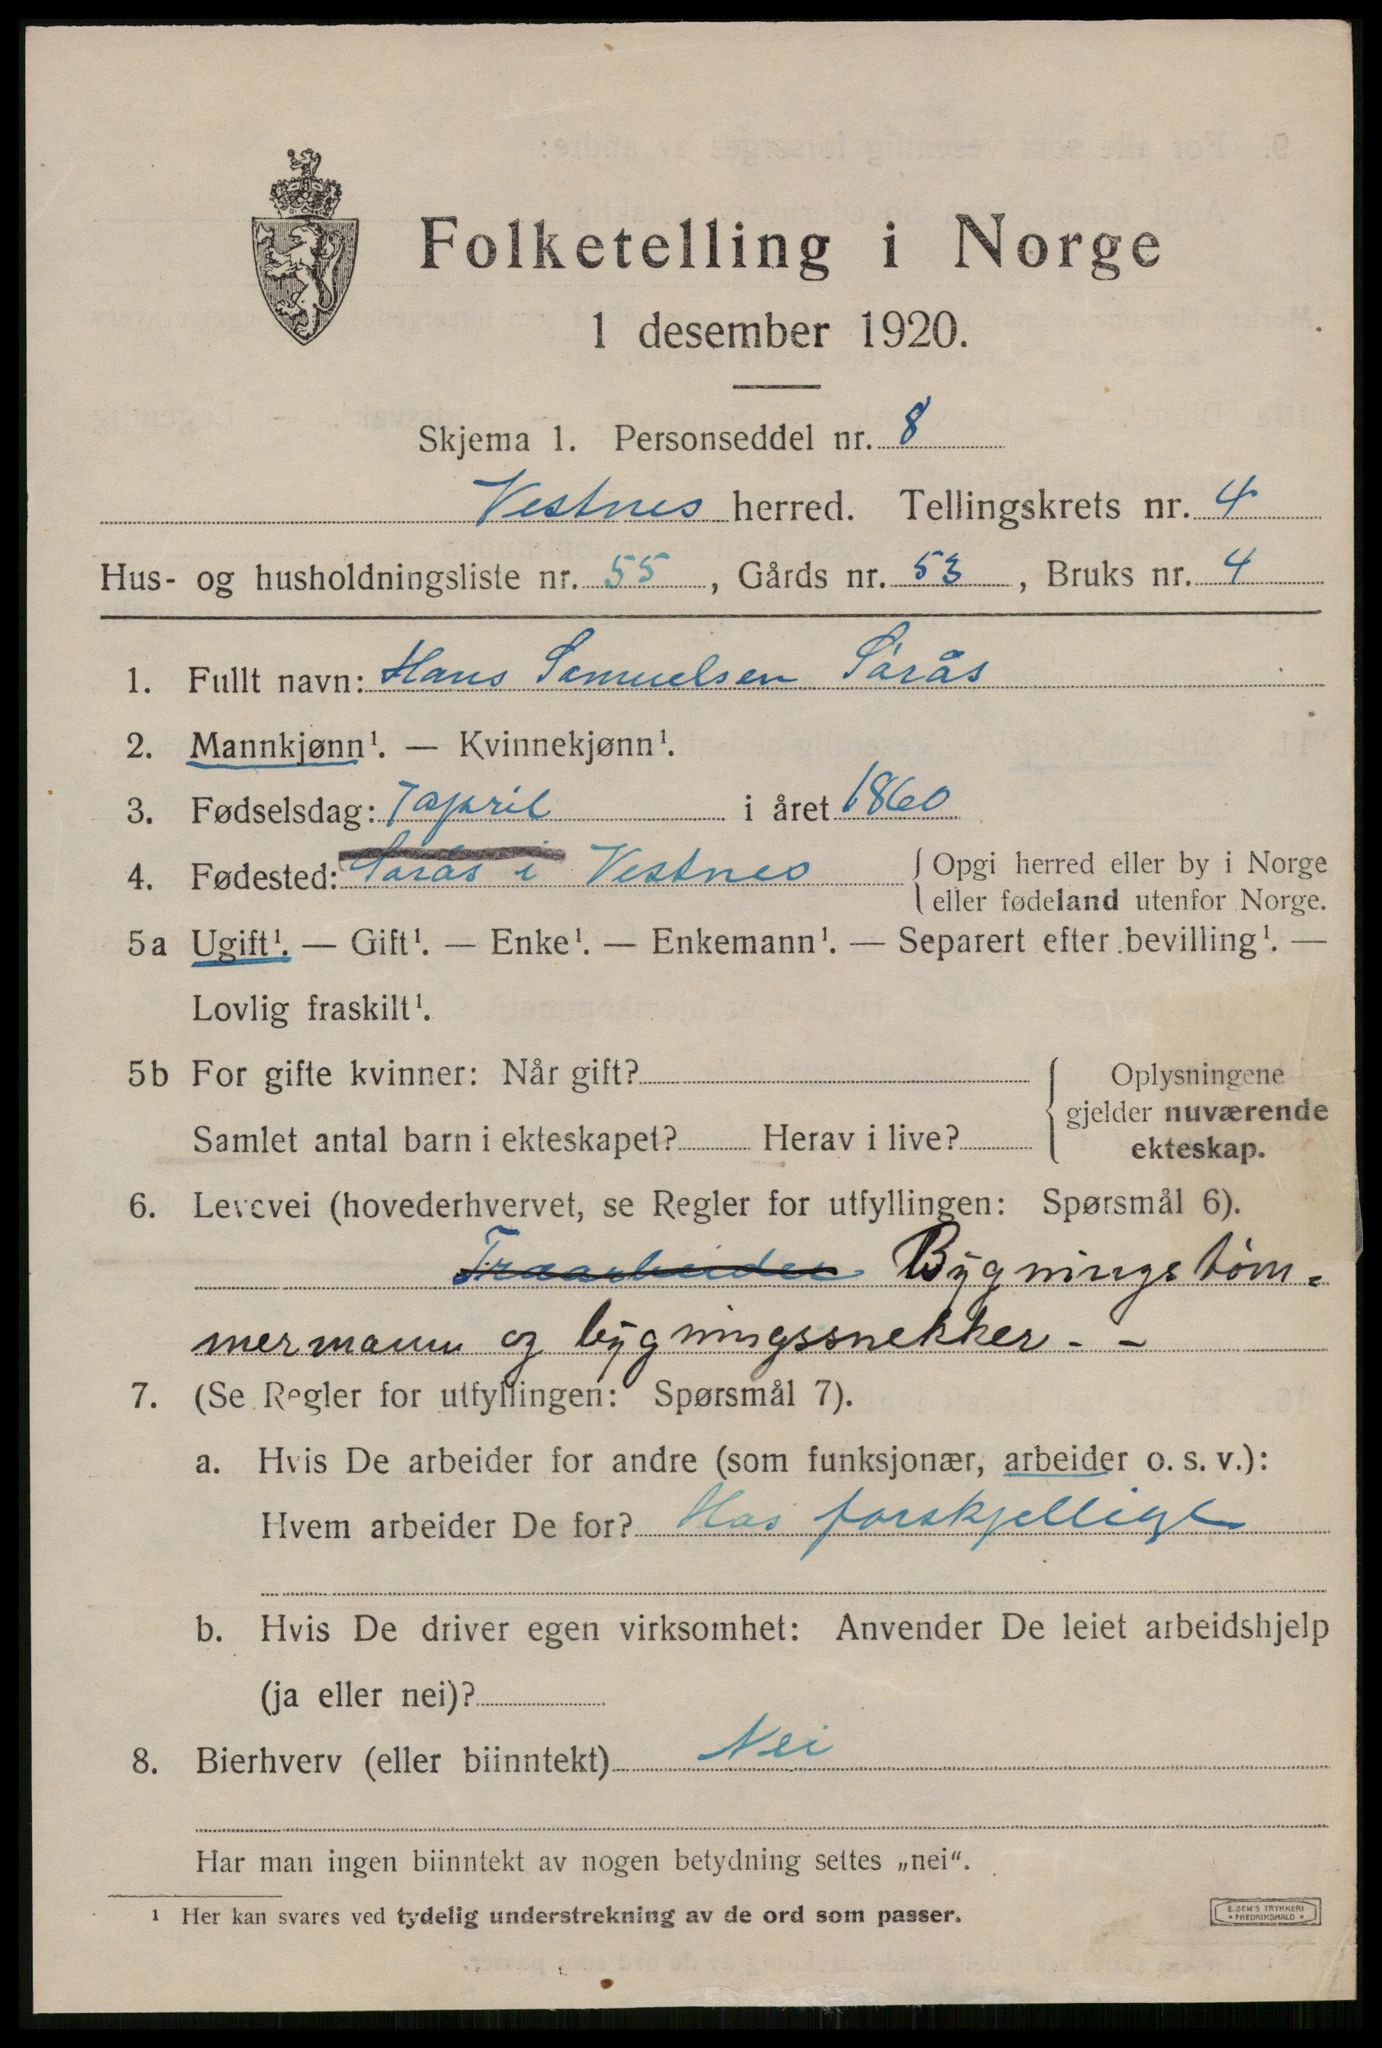 Folketelling i Norge
1 desember 1920.
Skjema 1. Personseddel nr. 8
Vestnes herred. Tellingskrets nr. 4
Hus- og husholdningsliste nr. 55, Gårds nr. 53, Bruks nr. 4
1. Fullt navn: Hans Samuelsen Sørås
2. Mannkjønn¹. — Kvinnekjønn¹.
3. Fødselsdag: 7 april i året 1860
4. Fødested: Sørås i Vestnes
{ Opgi herred eller by i Norge
eller fødeland utenfor Norge.
5a Ugift¹. — Gift¹. — Enke¹. — Enkemann¹. — Separert efter bevilling¹. —
Lovlig fraskilt¹.
5b For gifte kvinner: Når gift?
Samlet antal barn i ekteskapet? Herav i live?
{ Oplysningene
gjelder nuværende
ekteskap.
6. Levevei (hovederhvervet, se Regler for utfyllingen: Spørsmål 6).
Træarbeider Bygningstøm-
mermann og bygningssnekker - -
7. (Se Regler for utfyllingen: Spørsmål 7).
a. Hvis De arbeider for andre (som funksjonær, arbeider o. s. v.):
Hvem arbeider De for? Hos forskjellige
b. Hvis De driver egen virksomhet: Anvender De leiet arbeidshjelp
(ja eller nei)?
8. Bierhverv (eller biinntekt) Nei
Har man ingen biinntekt av nogen betydning settes „nei“.
¹ Her kan svares ved tydelig understrekning av de ord som passer.
E. SEM'S TRYKKERI
• FREDRIKSHALD •